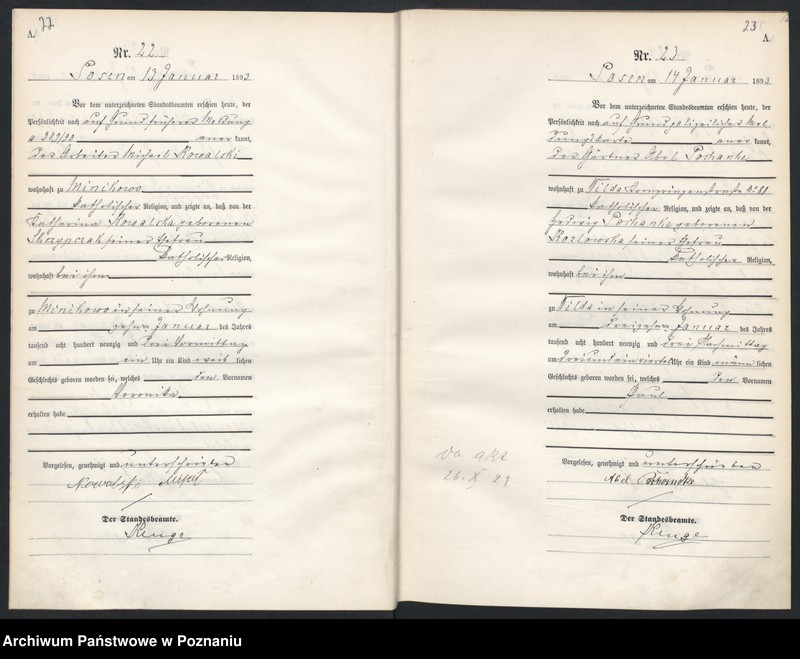 A. 22
Nr. 22
Posen am 13 Januar 1893
Vor dem unterzeichneten Standesbeamten erschien heute, der
Persönlichkeit nach auf Grund früherer Meldung
anerkannt,
des Arbeiter Michael Kowalski
wohnhaft zu Minikowo
katholischer Religion, und zeigte an, daß von der
Katharina Kowalska geborenen
Skrzypczak seiner Ehefrau
katholischer Religion,
wohnhaft bei ihm
zu Minikowo in seiner Wohnung
am zehn Januar des Jahres
tausend acht hundert neunzig und drei Vormittag
um ein Uhr ein Kind weiblichen
Geschlechts geboren worden sei, welches den Vornamen
Veronika
erhalten habe
Vorgelesen, genehmigt und unterschrieben
Kowalski
Der Standesbeamte.
23
A.
Nr. 23
Posen am 14 Januar 1893
Vor dem unterzeichneten Standesbeamten erschien heute, der
Persönlichkeit nach auf Grund polizeilicher Mel
dungskarte anerkannt,
des Gärtner Abel
wohnhaft zu Wilda Kronprinzenstraße
katholischer Religion, und zeigte an, daß von der
Hedwig geborenen
Kozlowska seiner Ehefrau
katholischer Religion,
wohnhaft bei ihm
zu Wilda in seiner Wohnung
am dreizehn Januar des Jahres
tausend acht hundert neunzig und drei Nachmittag
um Uhr ein Kind männlichen
Geschlechts geboren worden sei, welches den Vornamen
Paul
erhalten habe
Vorgelesen, genehmigt und unterschrieben
Abel
Der Standesbeamte.
Archiwum Państwowe w Poznaniu